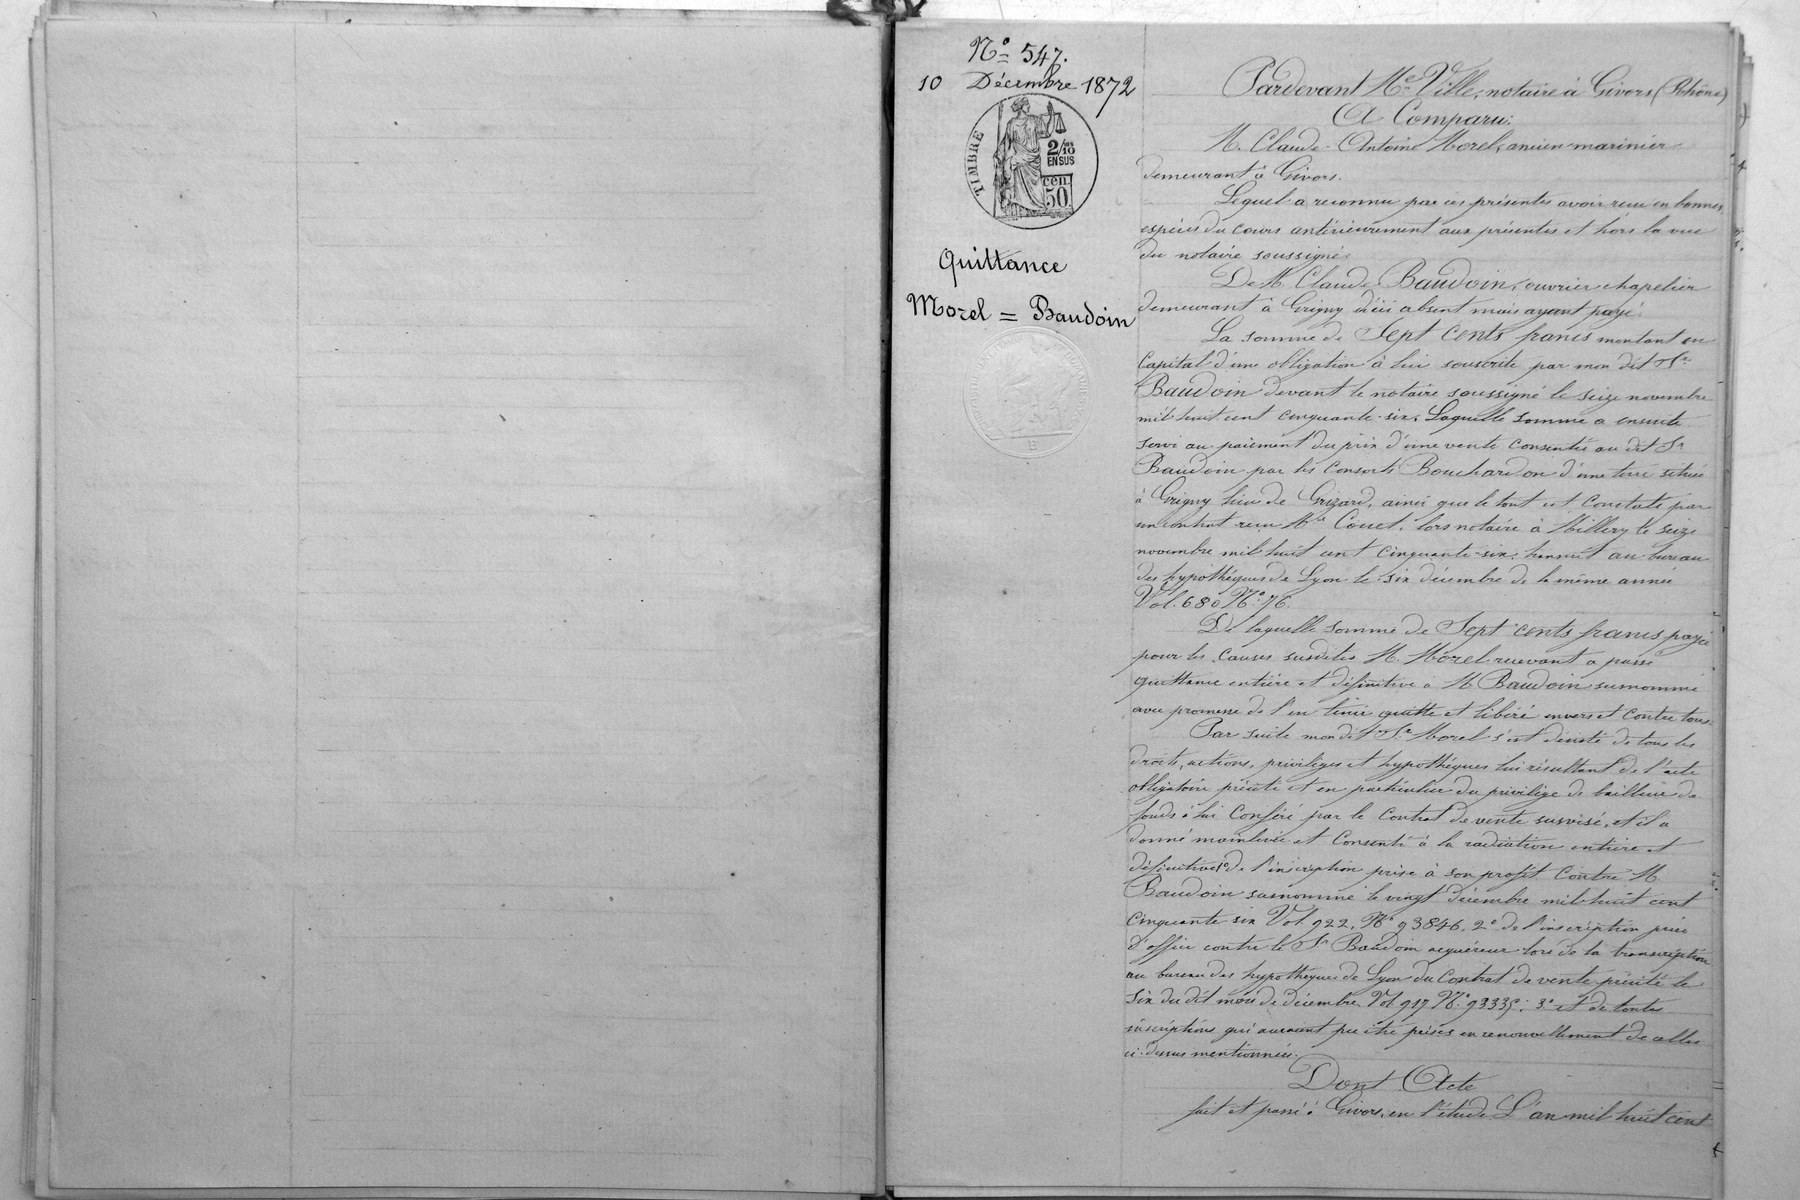 Nº 547.
10 Décembre 1872
TIMBRE
2/10
EN SUS
cen.
50
Quittance
Morel = Baudoin
Pardevant Me Ville, notaire à Givors (Rhône)
A Comparu:
M. Claude-Antoine Morel, ancien marinier
demeurant à Givors.
Lequel a reconnu par ces présentes avoir reçu en bonnes
espèces du cours antérieurement aux présentes et hors la vue
du notaire soussigné.
De M. Claude Baudoin, ouvrier chapelier
demeurant à Grigny ici absent mais ayant payé.
La somme de Sept cents francs montant en
Capital d'une obligation à lui souscrite par mon dit Sr
Baudoin devant le notaire soussigné le seize novembre
mil huit cent cinquante-six. Laquelle somme a ensuite
servi au paiement du prix d'une vente consentie au dit Sr
Baudoin par les consorts Bouchardon d'une terre située
à Grigny lieu de Grizard, ainsi que le tout est constaté par
un contrat reçu Me Couet, lors notaire à Millery le seize
novembre mil huit cent cinquante-six, transcrit au bureau
des hypothèques de Lyon le six décembre de la même année
Vol. 680 Nº 76.
De laquelle somme de Sept cents francs payée
pour les causes susdites M. Morel recevant a passé
quittance entière et définitive à M. Baudoin surnommé
avec promesse de l'en tenir quitte et libéré envers et contre tous.
Par suite mon dit Sr Morel s'est désisté de tous les
droits, actions, privilèges et hypothèques lui résultant de l'acte
obligatoire précité et en particulier du privilège de bailleur de
fonds à lui conféré par le contrat de vente susvisé, et il a
donné mainlevée et consenti à la radiation entière et
définitive 1º de l'inscription prise à son profit contre M.
Baudoin surnommé le vingt décembre mil huit cent
cinquante six Vol. 922, Nº 93846. 2º de l'inscription prise
d'office contre le Sr Baudoin acquéreur lors de la transcription
au bureau des hypothèques de Lyon du contrat de vente précité le
six du dit mois de décembre Vol 917 Nº 93335; 3º et de toutes
inscriptions qui auraient pu être prises en renouvellement de celles
ci-dessus mentionnées.
Dont Acte
fait et passé à Givors, en l'étude L'an mil huit cent